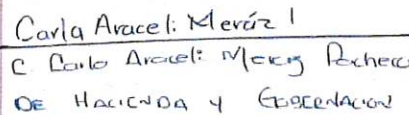 Carla Araceli Meráz
C Carla Araceli Meraz Pacheco
DE HACIENDA Y